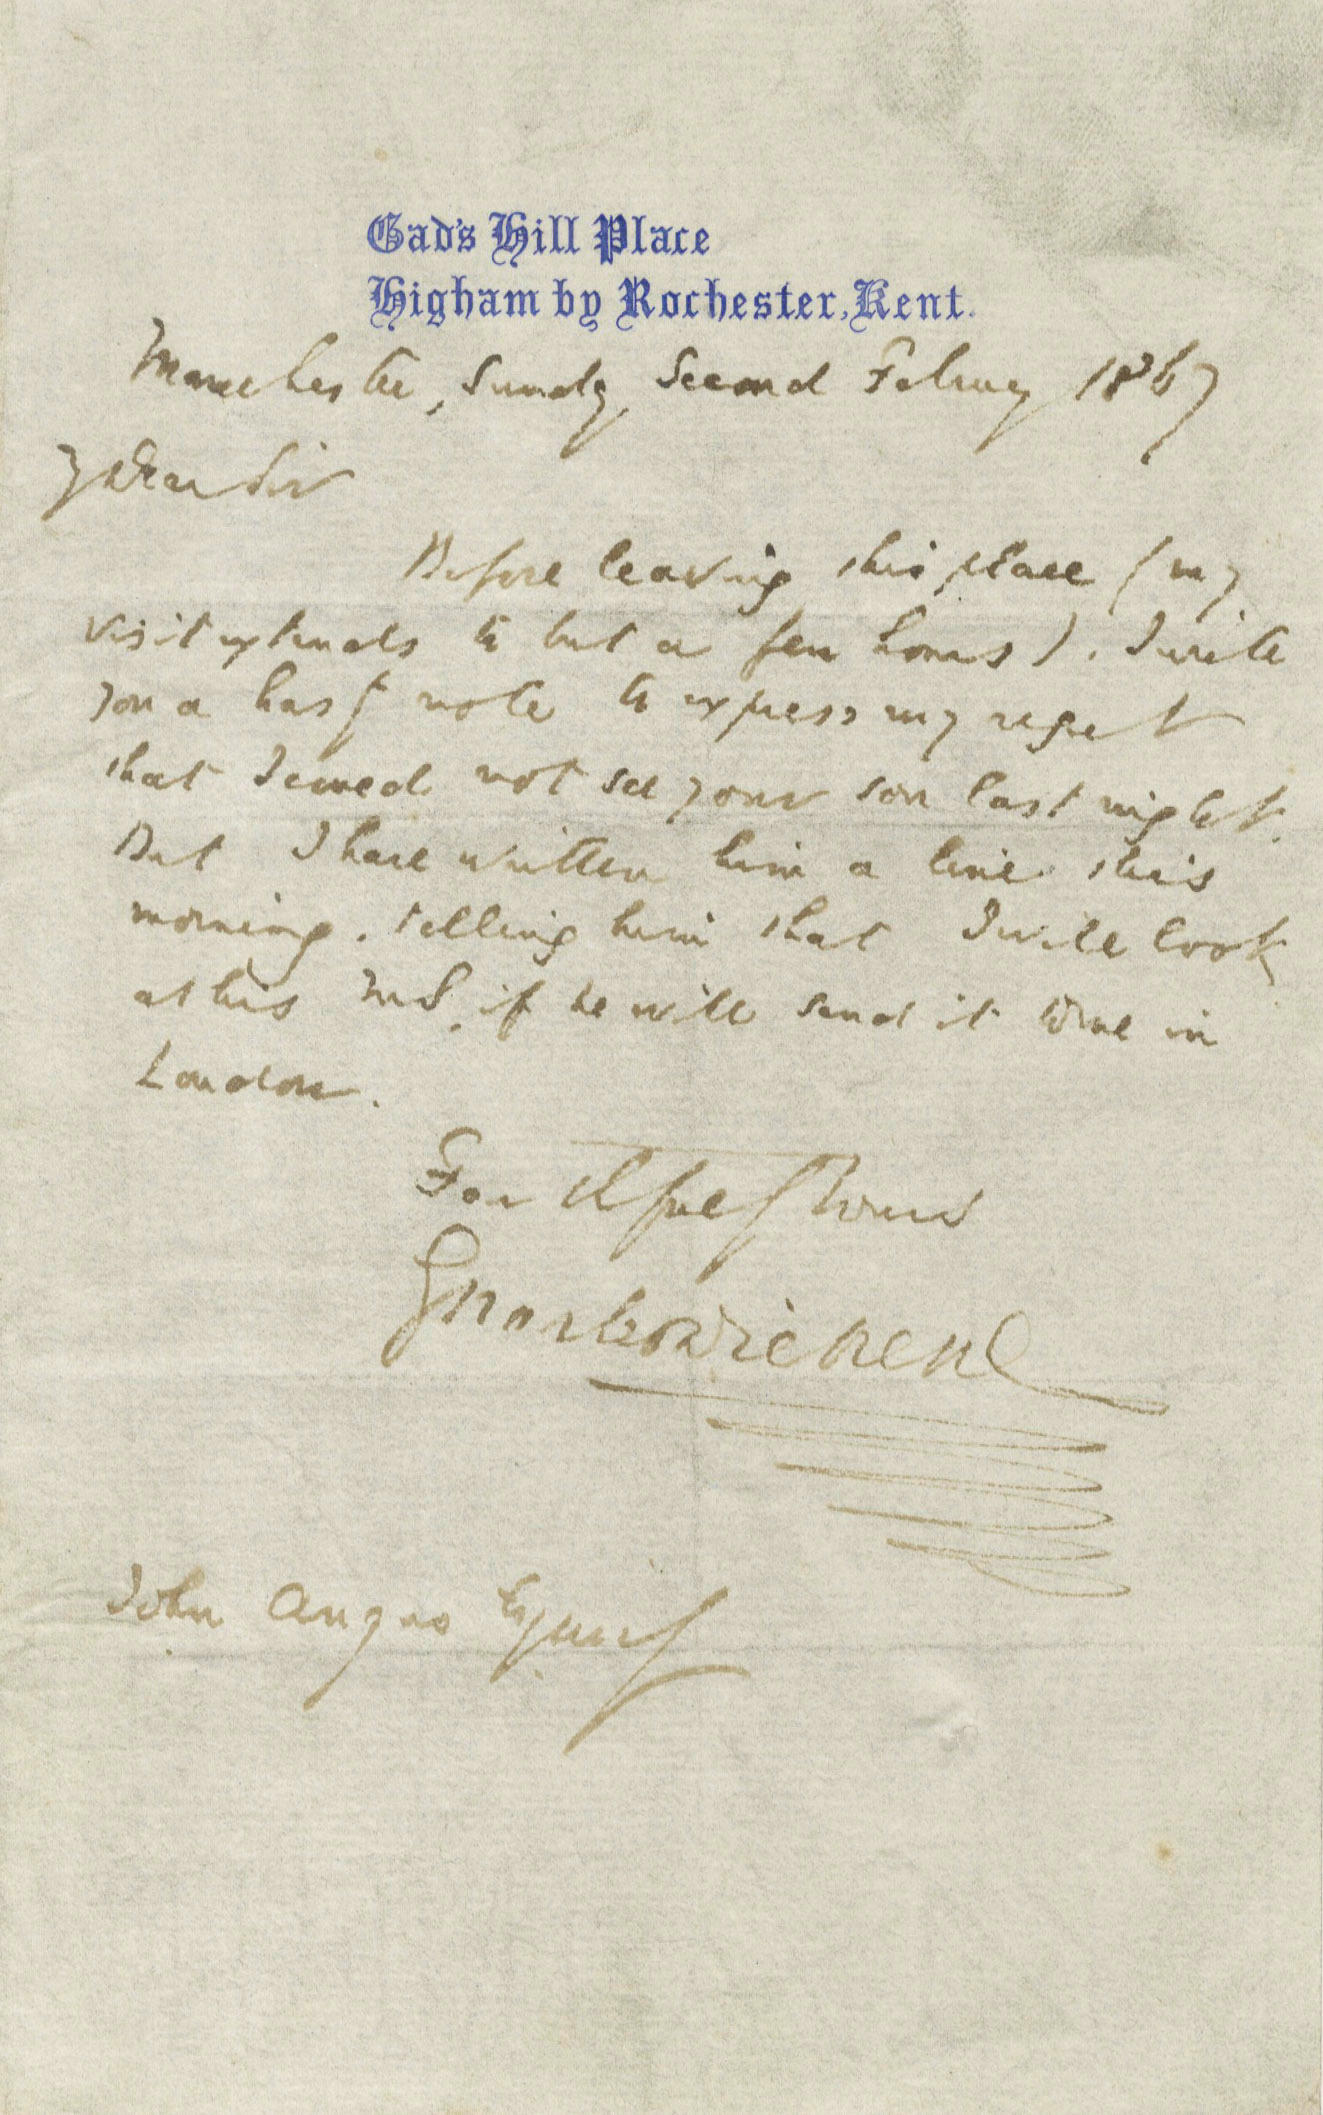 Gad's Hill Place
Higham by Rochester, Kent.
Manchester, Sunday, Second February 1867
My Dear Sir
Before leaving this place (my
visit extends to but a few hours), I write
you a hasty note to express my regret
that I could not see your son last night.
But I have written him a line this
morning, telling him that I will look
at his MS, if he will send it to me in
London.
Faithfully Yours
Charles Dickens
John Angus Esquire